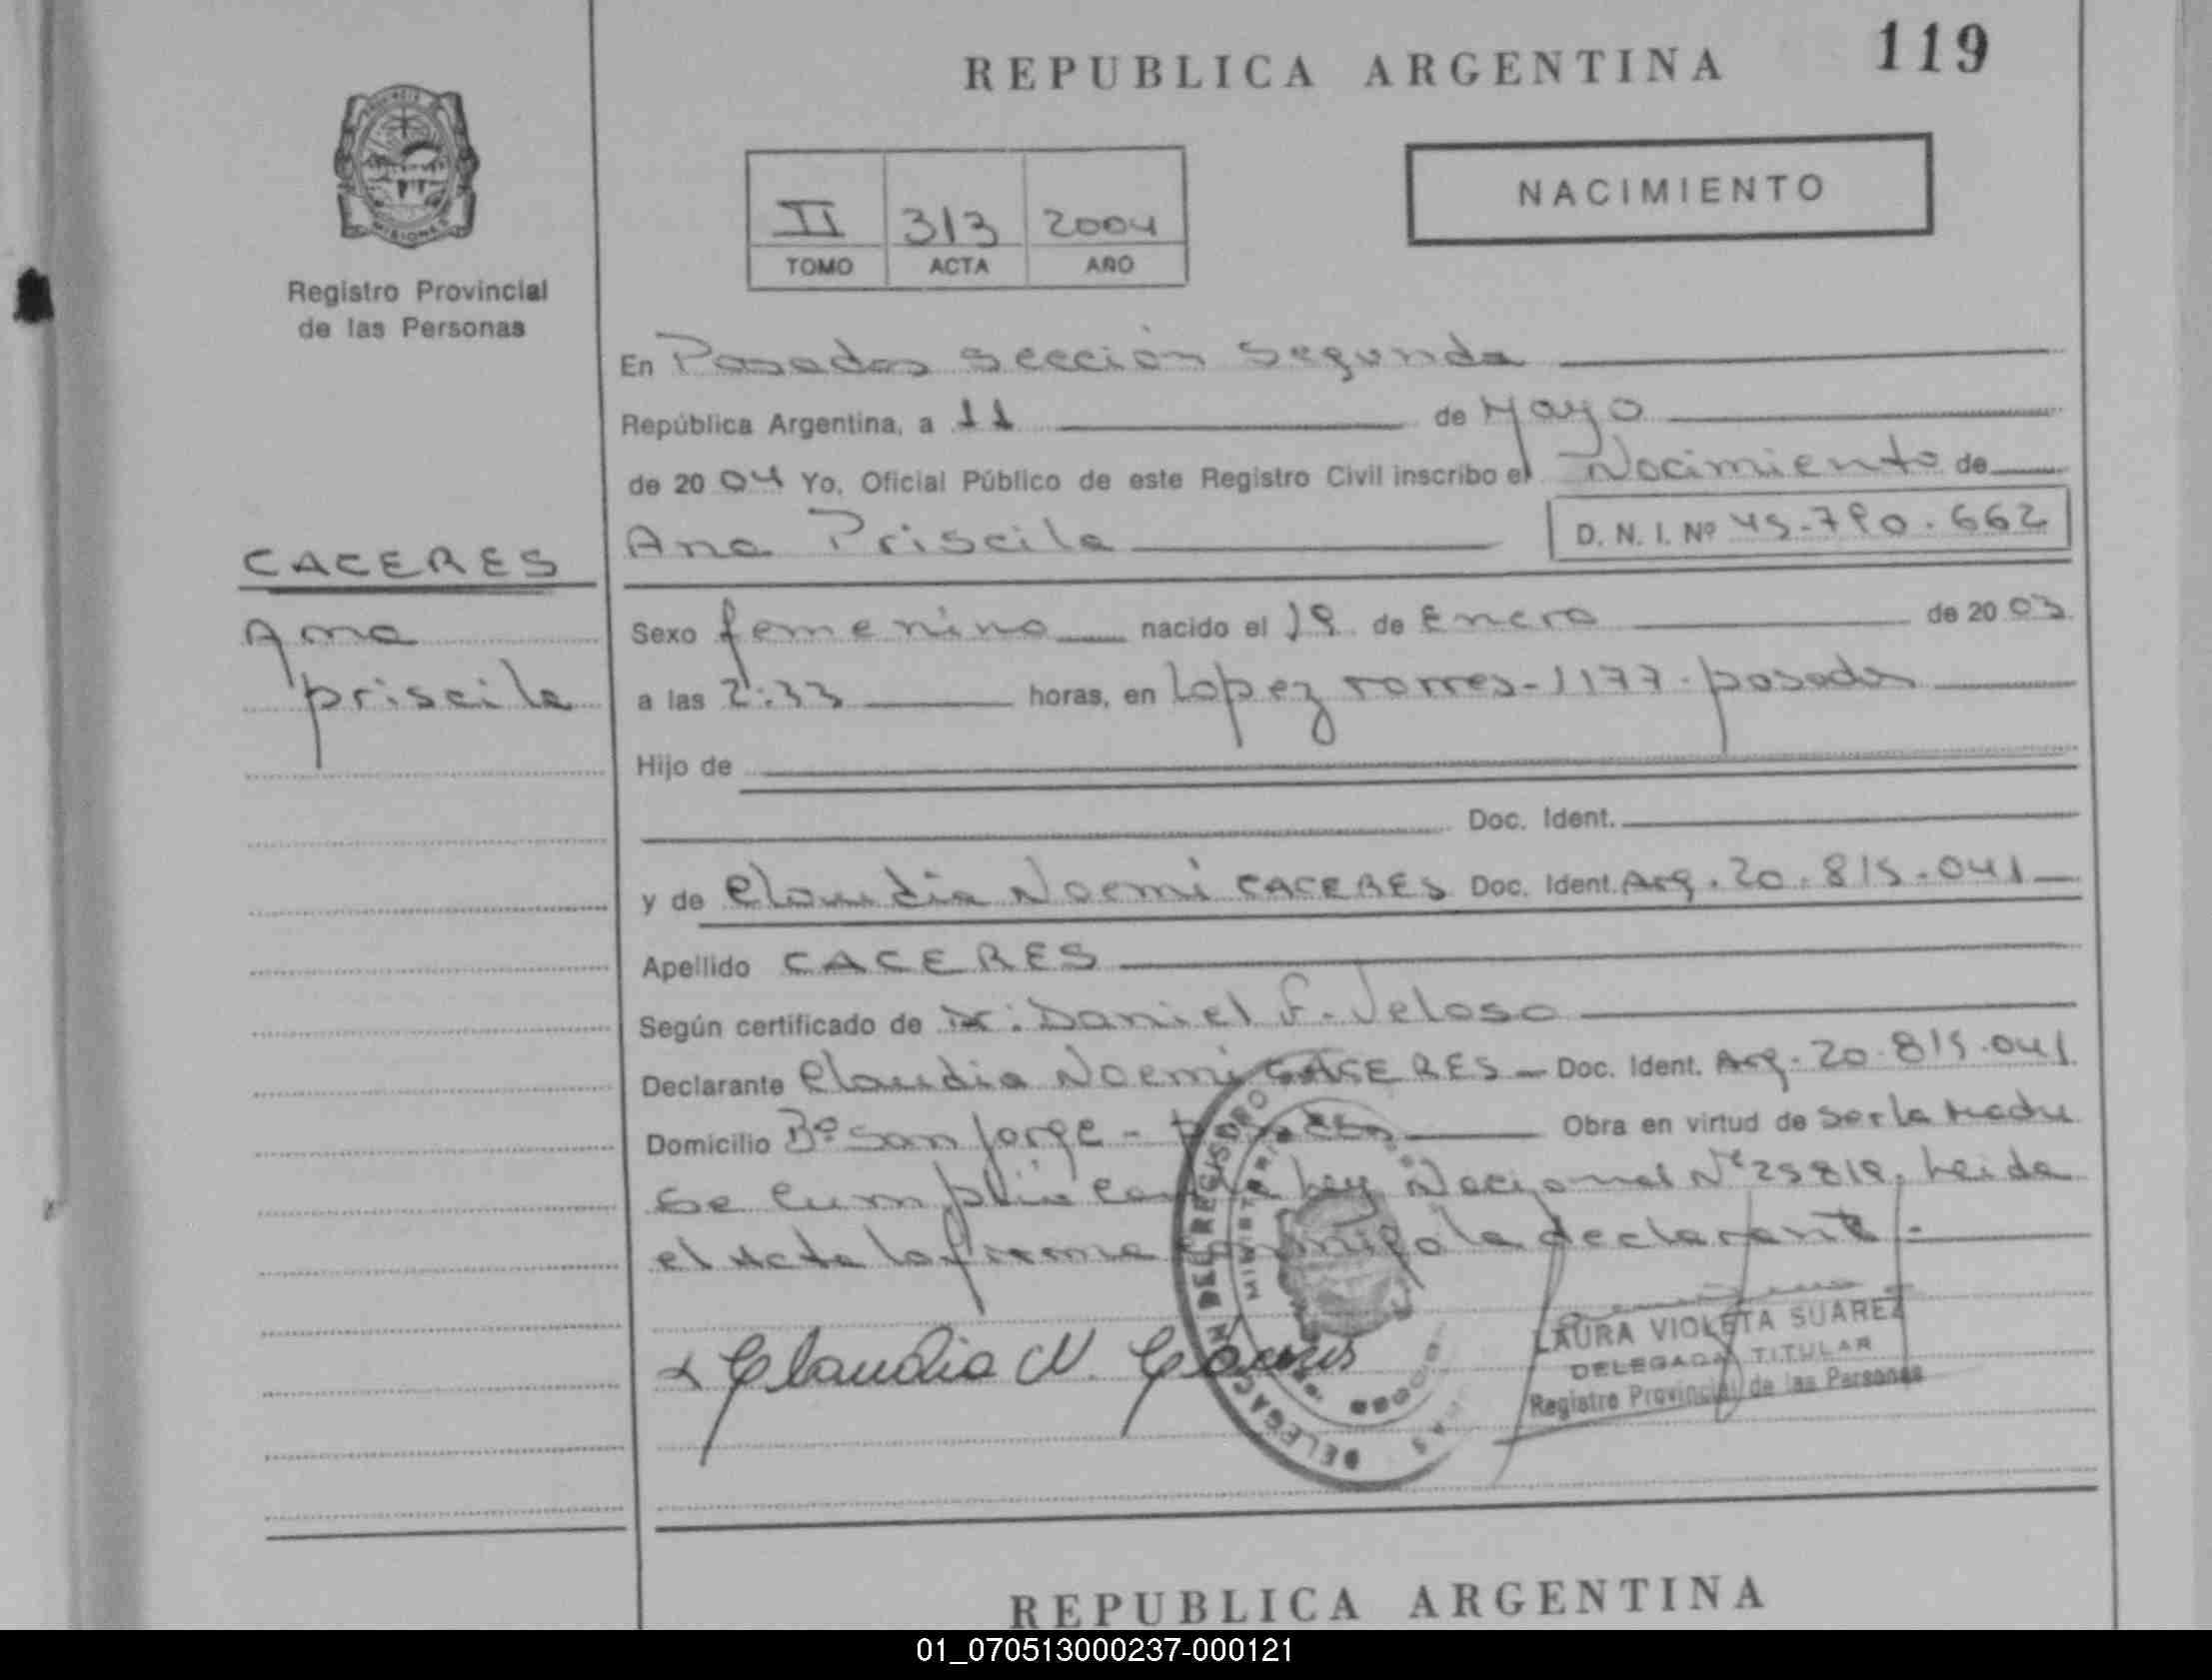 REPUBLICA ARGENTINA
119
PROVINCIA
MISIONES
Registro Provincial
de las Personas
II 313 2004
TOMO ACTA AÑO
NACIMIENTO
En Posadas sección segunda
República Argentina, a 11 de Mayo
de 2004 Yo, Oficial Público de este Registro Civil inscribo el Nacimiento de
Ana Priscila D. N. I. Nº 45-790-662
CACERES
Ana
priscila
Sexo femenino nacido el 19 de Enero de 2003
a las 2:33 horas, en Lopez torres-1177-posadas
Hijo de
Doc. Ident.
y de Claudia Noemi CACERES Doc. Ident. Arg. 20.815.041
Apellido CACERES
Según certificado de Dr: Daniel F. Veloso
Declarante Claudia Noemi CACERES Doc. Ident. Arg. 20.815.041
Domicilio Bº San Jorge - posadas Obra en virtud de ser la Madre
Se cumplió con la Ley Nacional Nº 25819, Leida
el Acta la firma conmigo la declarante.-
x Claudia N. Cáceres
DELEGACION DEL REGISTRO
MINISTERIO
LAURA VIOLETA SUAREZ
DELEGADA TITULAR
Registro Provincial de las Personas
REPUBLICA ARGENTINA
01_070513000237-000121